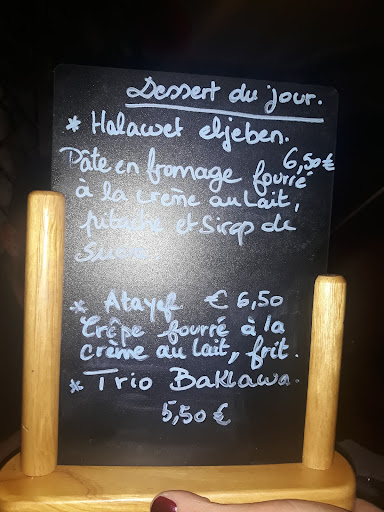 Dessert du jour.
* Halawet eljeben.
6,50€
Pâte en fromage fourré
à la crème au Lait,
pistache et Sirop de
sucre.
* Atayef € 6,50
Crêpe fourré à la
crème au lait, frit.
* Trio Baklawa.
5,50 €